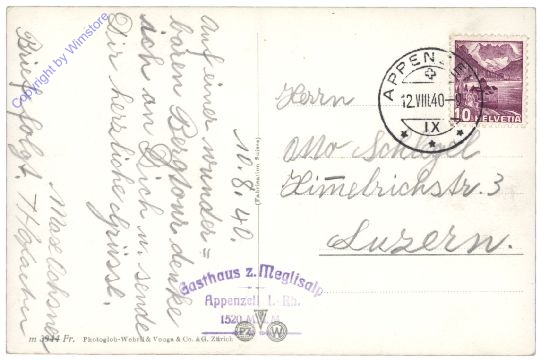 10.8.40.
Auf einer wunder=
baren Bergtour denke
ich an Dich u. sende
Dir herrliche Grüsse.
Brief folgt.
Herrn
Schlegel
Himmelrichstr. 3
Luzern.
APPENZELL
12.VIII.40-9
IX
10 HELVETIA
(Fabrication Suisse)
Gasthaus z. Meglisalp
Appenzell I.-Rh.
1520 M.ü.M.
PZ W
m 3944 Fr. Photoglob-Wehrli & Vouga & Co. AG. Zürich
Copyright by Wimstore